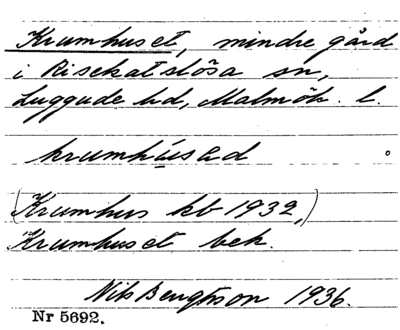 Krumhuset, mindre gård
i Risekatslösa sn,
Luggude hd, Malmöh. l.
krumhúsəd
(Krumhus kb 1932,)
Krumhuset bek.
Nils Bengtsson 1936.
Nr 5692.